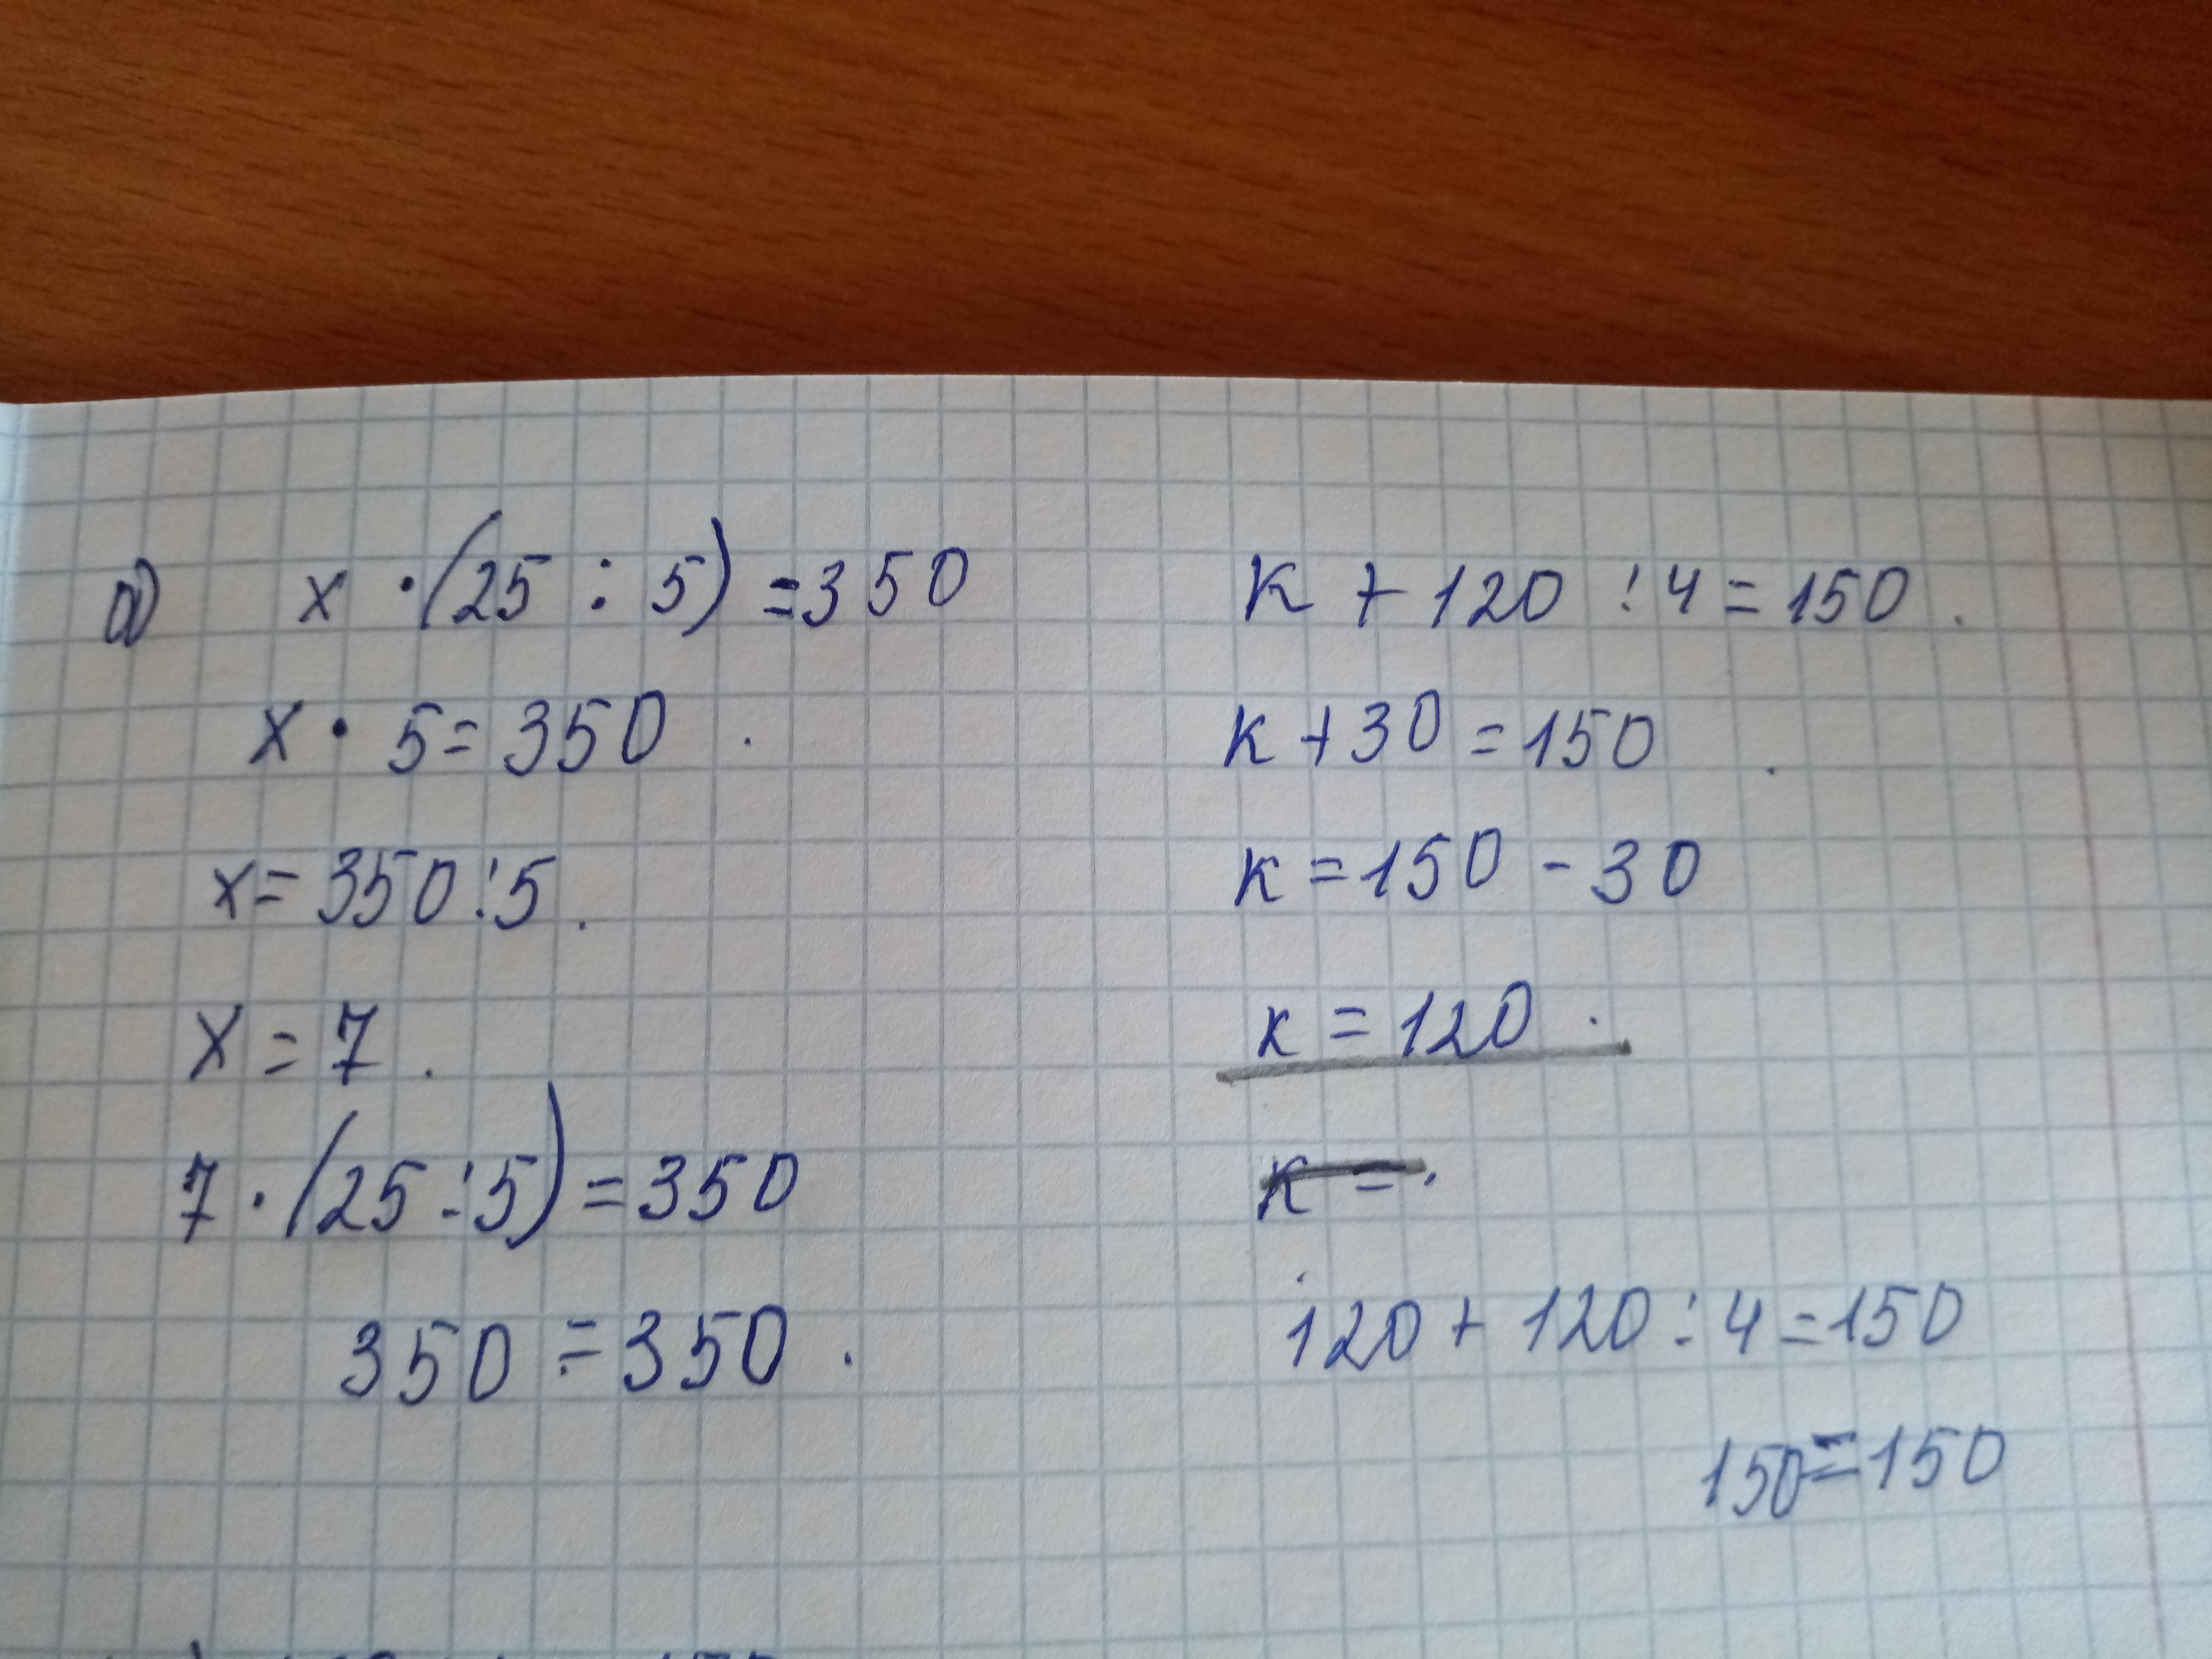 а) x · (25 : 5) = 350
x · 5 = 350
x = 350 : 5.
x = 7.
7 · (25 : 5) = 350
350 = 350.
к + 120 : 4 = 150.
к + 30 = 150.
к = 150 - 30
к = 120.
к = .
120 + 120 : 4 = 150
150 = 150